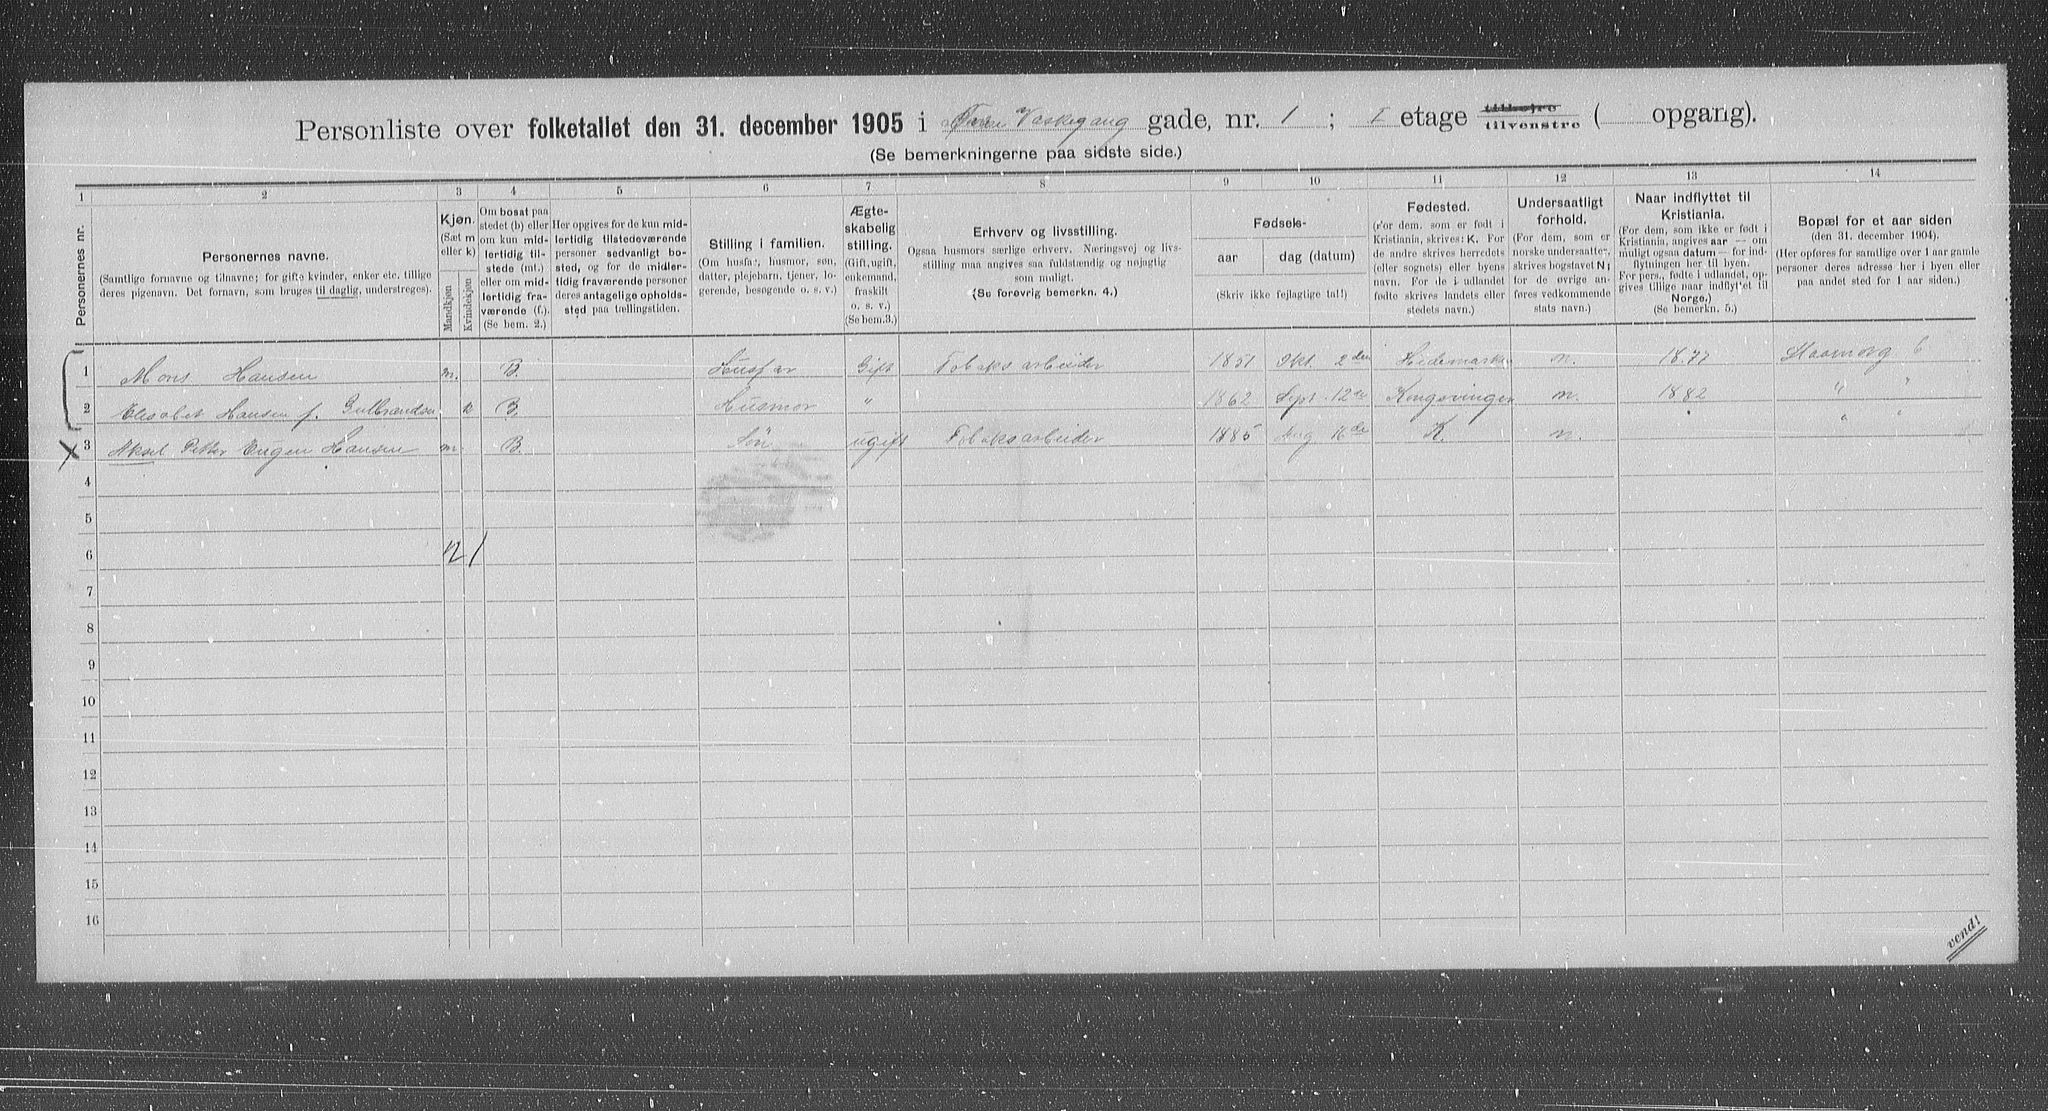 Personliste over folketallet den 31. december 1905 i Øvre Vaskegang gade, nr. 1 ; I etage tilhøjre tilvenstre ( opgang).
(Se bemerkningerne paa sidste side.)
1 2 3 4 5 6 7 8 9 10 11 12 13 14
Personernes nr.
Personernes navne.
(Samtlige fornavne og tilnavne; for gifte kvinder, enker etc. tillige
deres pigenavn. Det fornavn, som bruges til daglig, understreges).
Kjøn.
(Sæt m
eller k)
Mandkjøn
Kvindekjøn
Om bosat paa
stedet (b) eller
om kun mid-
lertidig til-
stede (mt.)
eller om mid-
lertidig fra-
værende (f.).
(Se bem. 2.)
Her opgives for de kun mid-
lertidig tilstedeværende
personer sedvanligt bo-
sted, og for de midler-
tidig fraværende personer
deres antagelige opholds-
sted paa tællingstiden.
Stilling i familien.
(Om husfar, husmor, søn,
datter, plejebarn, tjener, lo-
gerende, besøgende o. s. v.)
Ægte-
skabelig
stilling.
(Gift, ugift,
enkemand,
fraskilt
o. s. v.)
(Se bem.3.)
Erhverv og livsstilling.
Ogsaa husmors særlige erhverv. Næringsvej og livs-
stilling maa angives saa fuldstændig og nøjagtig
som muligt.
(Se forøvrig bemerkn. 4.)
Fødsels-
aar dag (datum)
(Skriv ikke fejlagtige tal!)
Fødested.
(For dem, som er født i
Kristiania, skrives: K. For
de andre skrives herredets
(eller sognets) eller byens
navn. For de i udlandet
fødte skrives landets eller
stedets navn.)
Undersaatligt
forhold.
(For dem, som er
norske undersaatter,
skrives bogstavet N;
for de øvrige an-
føres vedkommende
stats navn.)
Naar indflyttet til
Kristiania.
(For dem, som ikke er født i
Kristiania, angives aar — om
muligt ogsaa datum — for ind-
flytningen her til byen.
For pers., fødte i udlandet, op-
gives tillige naar indflyttet til
Norge.)
(Se bemerkn. 5.)
Bopæl for et aar siden
(den 31. december 1904).
(Her opføres for samtlige over 1 aar gamle
personer deres adresse her i byen eller
paa andet sted for 1 aar siden.)
1 Mons Hansen m. B. Husfar Gift Tobaksarbeider 1851 Okt. 2den Hedemarken n. 1877 6
2 Elisabet Hansen f. Gulbrandsen k B. Husmor " 1862 Sept. 12te Kongsvinger n. 1882 " "
3 Aksel Petter Eugen Hansen m. B. Søn ugift Tobaksarbeider 1885 Aug 16de K. n. " "
4
5
6 2 1
7
8
9
10
11
12
13
14
15
16
vend!